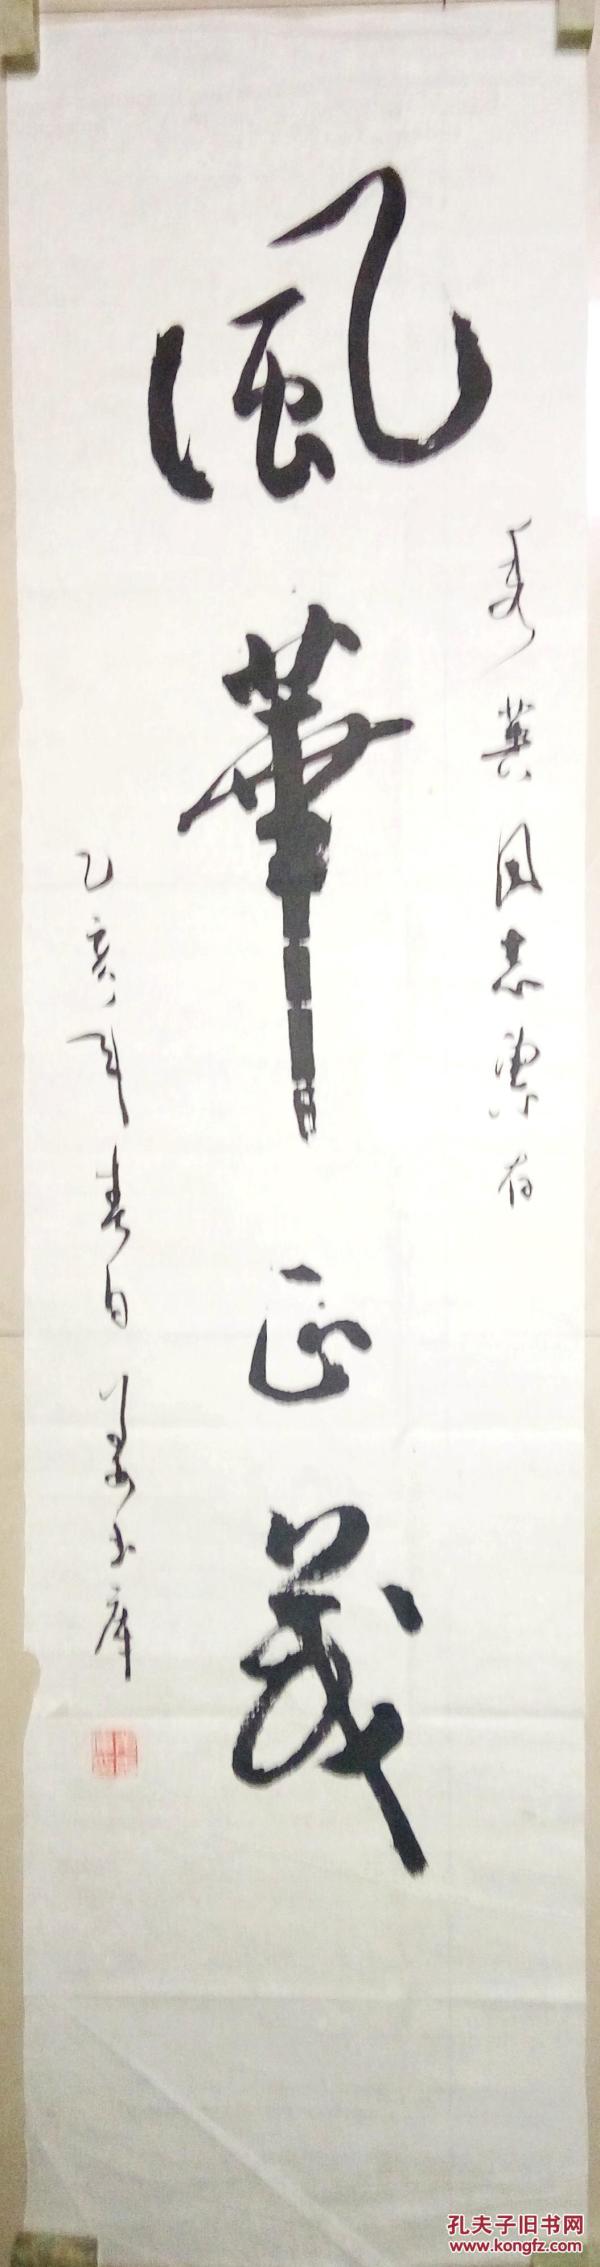 秀同志存
風華正茂
乙亥年春日姜玉
孔夫子旧书网
www.kongfz.com